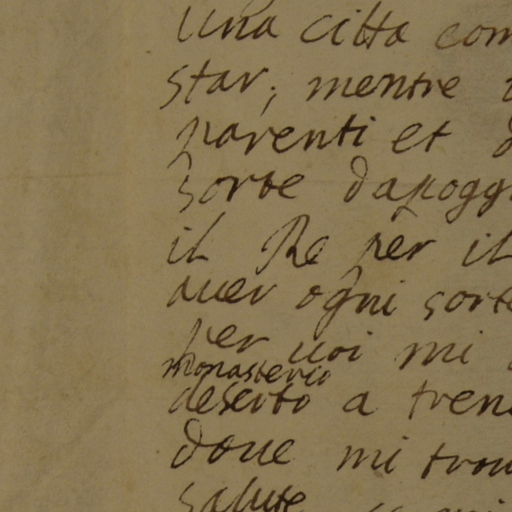 una citta com
star, mentre
parenti et d
sorte dapoggi
il Re per il
auer ogni sorte
per uoi mi
monasterio
deserto a tren
doue mi trou
salute